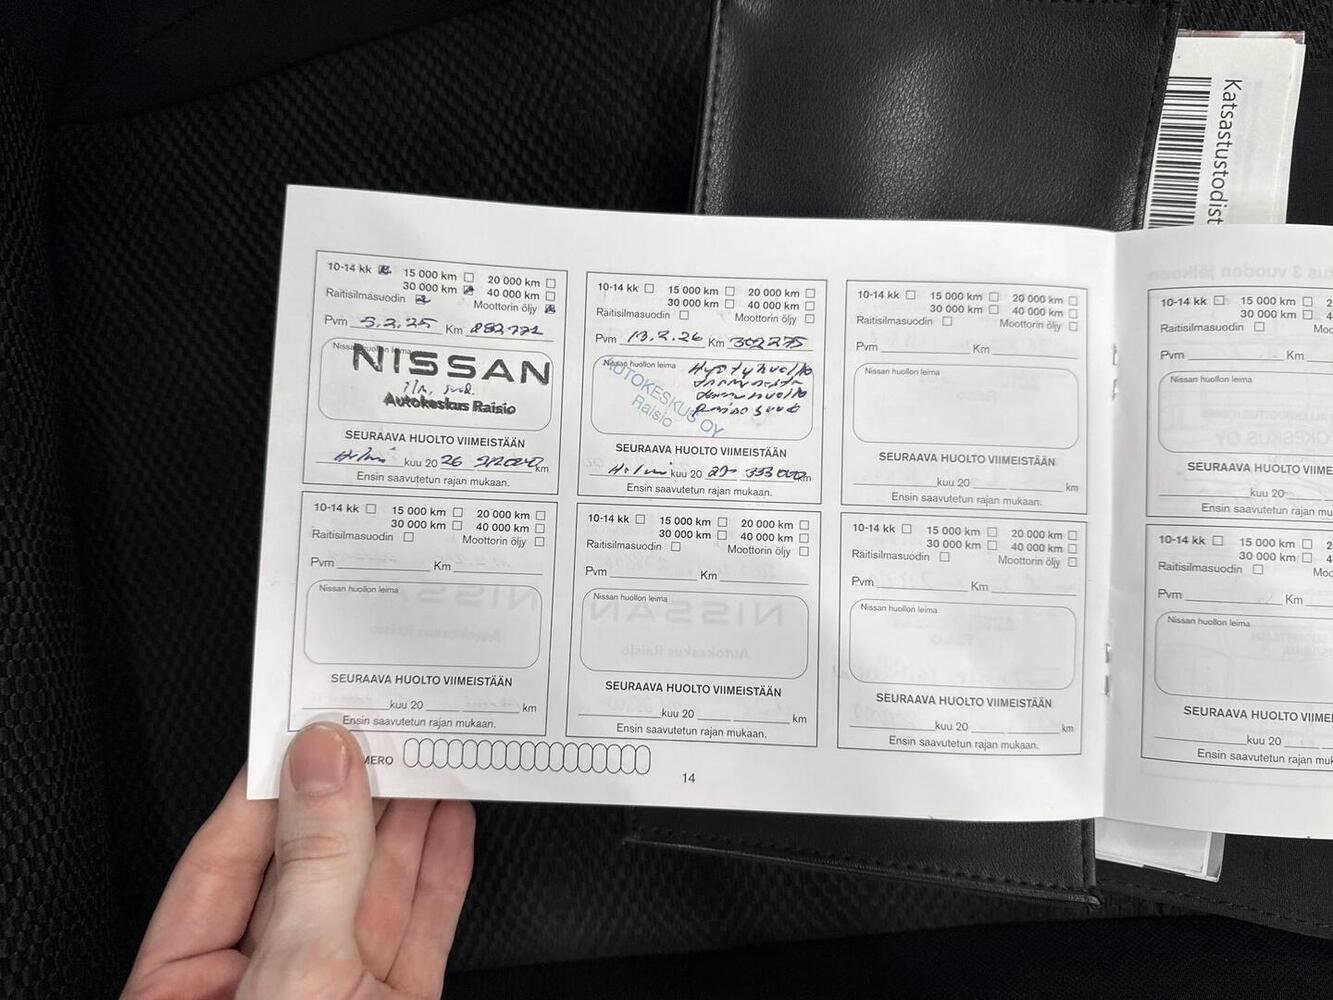 Katsastustodist
10-14 kk 15 000 km 20 000 km
30 000 km 40 000 km
Raitisilmasuodin Moottorin öljy
Pvm 5.2.25 Km
Nissan huollon leima
NISSAN
Autokeskus Raisio
SEURAAVA HUOLTO VIIMEISTÄÄN
Helmi kuu 20 26 km
Ensin saavutetun rajan mukaan.
10-14 kk 15 000 km 20 000 km
30 000 km 40 000 km
Raitisilmasuodin Moottorin öljy
Pvm 13.2.26 Km 302275
Nissan huollon leima
AUTOKESKUS OY
Raisio
SEURAAVA HUOLTO VIIMEISTÄÄN
Helmi kuu 20 27 333 000 km
Ensin saavutetun rajan mukaan.
10-14 kk 15 000 km 20 000 km
30 000 km 40 000 km
Raitisilmasuodin Moottorin öljy
Pvm Km
Nissan huollon leima
SEURAAVA HUOLTO VIIMEISTÄÄN
kuu 20 km
Ensin saavutetun rajan mukaan.
10-14 kk 15 000 km 20 000 km
30 000 km 40 000 km
Raitisilmasuodin Moottorin öljy
Pvm Km
Nissan huollon leima
SEURAAVA HUOLTO VIIMEISTÄÄN
kuu 20 km
Ensin saavutetun rajan mukaan.
10-14 kk 15 000 km 20 000 km
30 000 km 40 000 km
Raitisilmasuodin Moottorin öljy
Pvm Km
Nissan huollon leima
SEURAAVA HUOLTO VIIMEISTÄÄN
kuu 20 km
Ensin saavutetun rajan mukaan.
10-14 kk 15 000 km 20 000 km
30 000 km 40 000 km
Raitisilmasuodin Moottorin öljy
Pvm Km
Nissan huollon leima
SEURAAVA HUOLTO VIIMEISTÄÄN
kuu 20 km
Ensin saavutetun rajan mukaan.
MERO
14
10-14 kk 15 000 km 2
30 000 km 4
Raitisilmasuodin Moo
Pvm Km
Nissan huollon leima
SEURAAVA HUOLTO VIIME
kuu 20
Ensin saavutetun rajan mu
10-14 kk 15 000 km 2
30 000 km 40
Raitisilmasuodin Moo
Pvm Km
Nissan huollon leima
SEURAAVA HUOLTO VIIME
kuu 20
Ensin saavutetun rajan muk